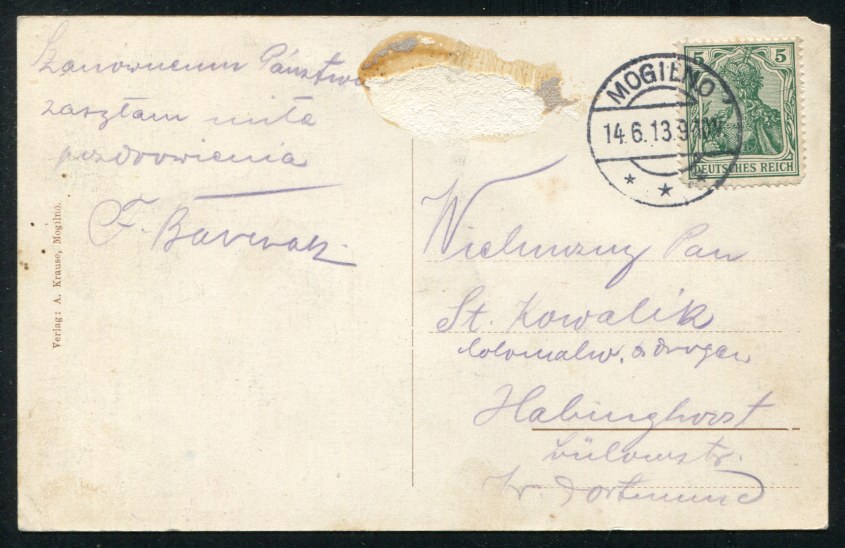 Szanownemu Państwu
zasyłam miłe
pozdrowienia
F.
Verlag: A. Krause, Mogilno.
MOGILNO
14.6.13.9-10V.
5 5
DEUTSCHES REICH
Wielmożny Pan
St. Kowalik
Colonialw. & Drogen
Habinghorst
Bülowstr.
Kr. Dortmund